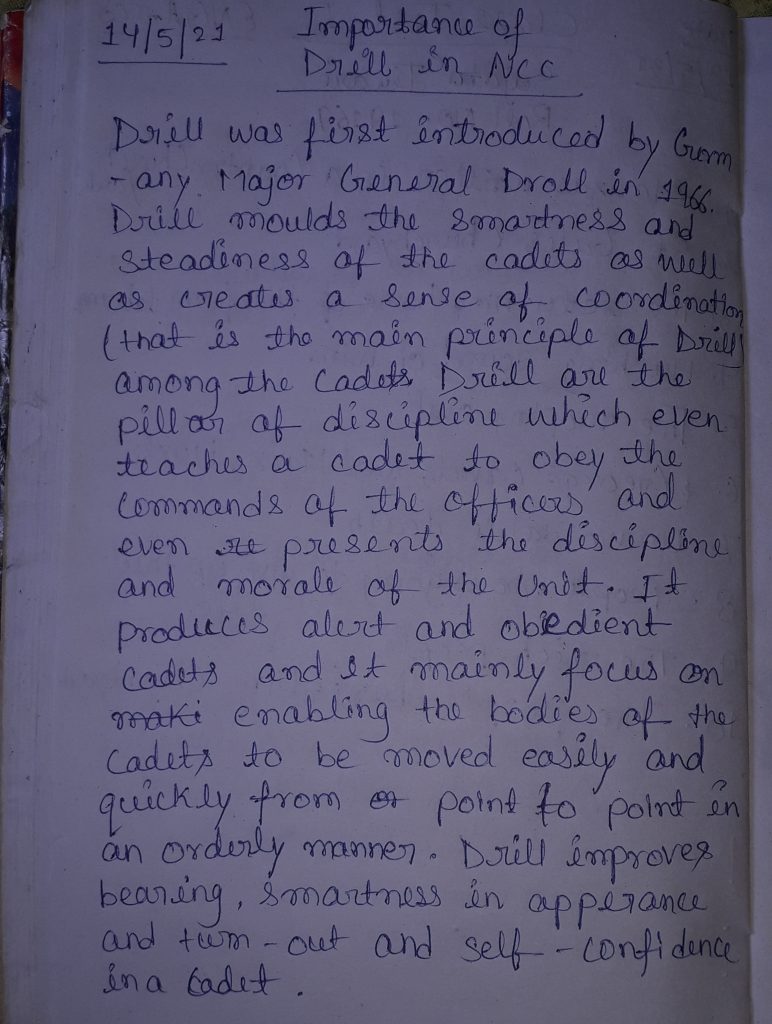 14/5/21 Importance of
Drill in NCC
Drill was first introduced by Germ
- any Major General Droll in 1966.
Drill moulds the smartness and
steadiness of the cadets as well
as creates a sense of coordination
(that is the main principle of Drill)
among the Cadets Drill are the
pillar of discipline which even
teaches a cadet to obey the
Commands of the officers and
even re presents the discipline
and morale of the Unit. It
produces alert and obiedient
Cadets and it mainly focus on
maki enabling the bodies of the
Cadets to be moved easily and
quickly from or point to point in
an orderly manner. Drill improves
bearing, smartness in apperance
and turn-out and self-confidence
in a Cadet.